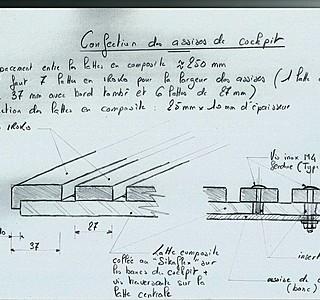 Confection des assises de cockpit
pacement entre les lattes en composite ≈ 250 mm
faut 7 lattes en iRoko pour la largeur des assises (1 latte
37 mm avec bord tombé et 6 lattes de 27 mm)
ction des lattes en composite : 25 mm x 10 mm d'épaisseur
iRoko
Vis inox M4
(Typ
27
37
Latte composite
collée au "Sikaflex" sur
les bancs du cockpit +
vis traversante sur la
latte centrale
insert
assise de c
(banc)